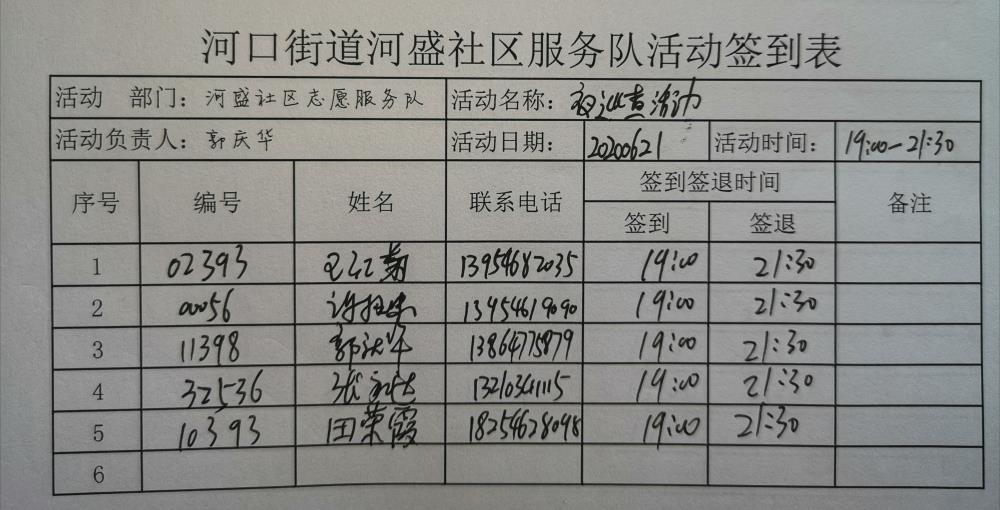 河口街道河盛社区服务队活动签到表
活动 部门：河盛社区志愿服务队 活动名称：夜巡查活动
活动负责人：郭庆华 活动日期：20200621 活动时间：19:00-21:30
序号 编号 姓名 联系电话 签到签退时间 备注
签到 签退
1 02393 王红菊 13954682035 19:00 21:30
2 00056 13954619090 19:00 21:30
3 11398 郭庆华 13864775879 19:00 21:30
4 32536 张 13210341115 19:00 21:30
5 10393 田荣霞 18254628098 19:00 21:30
6